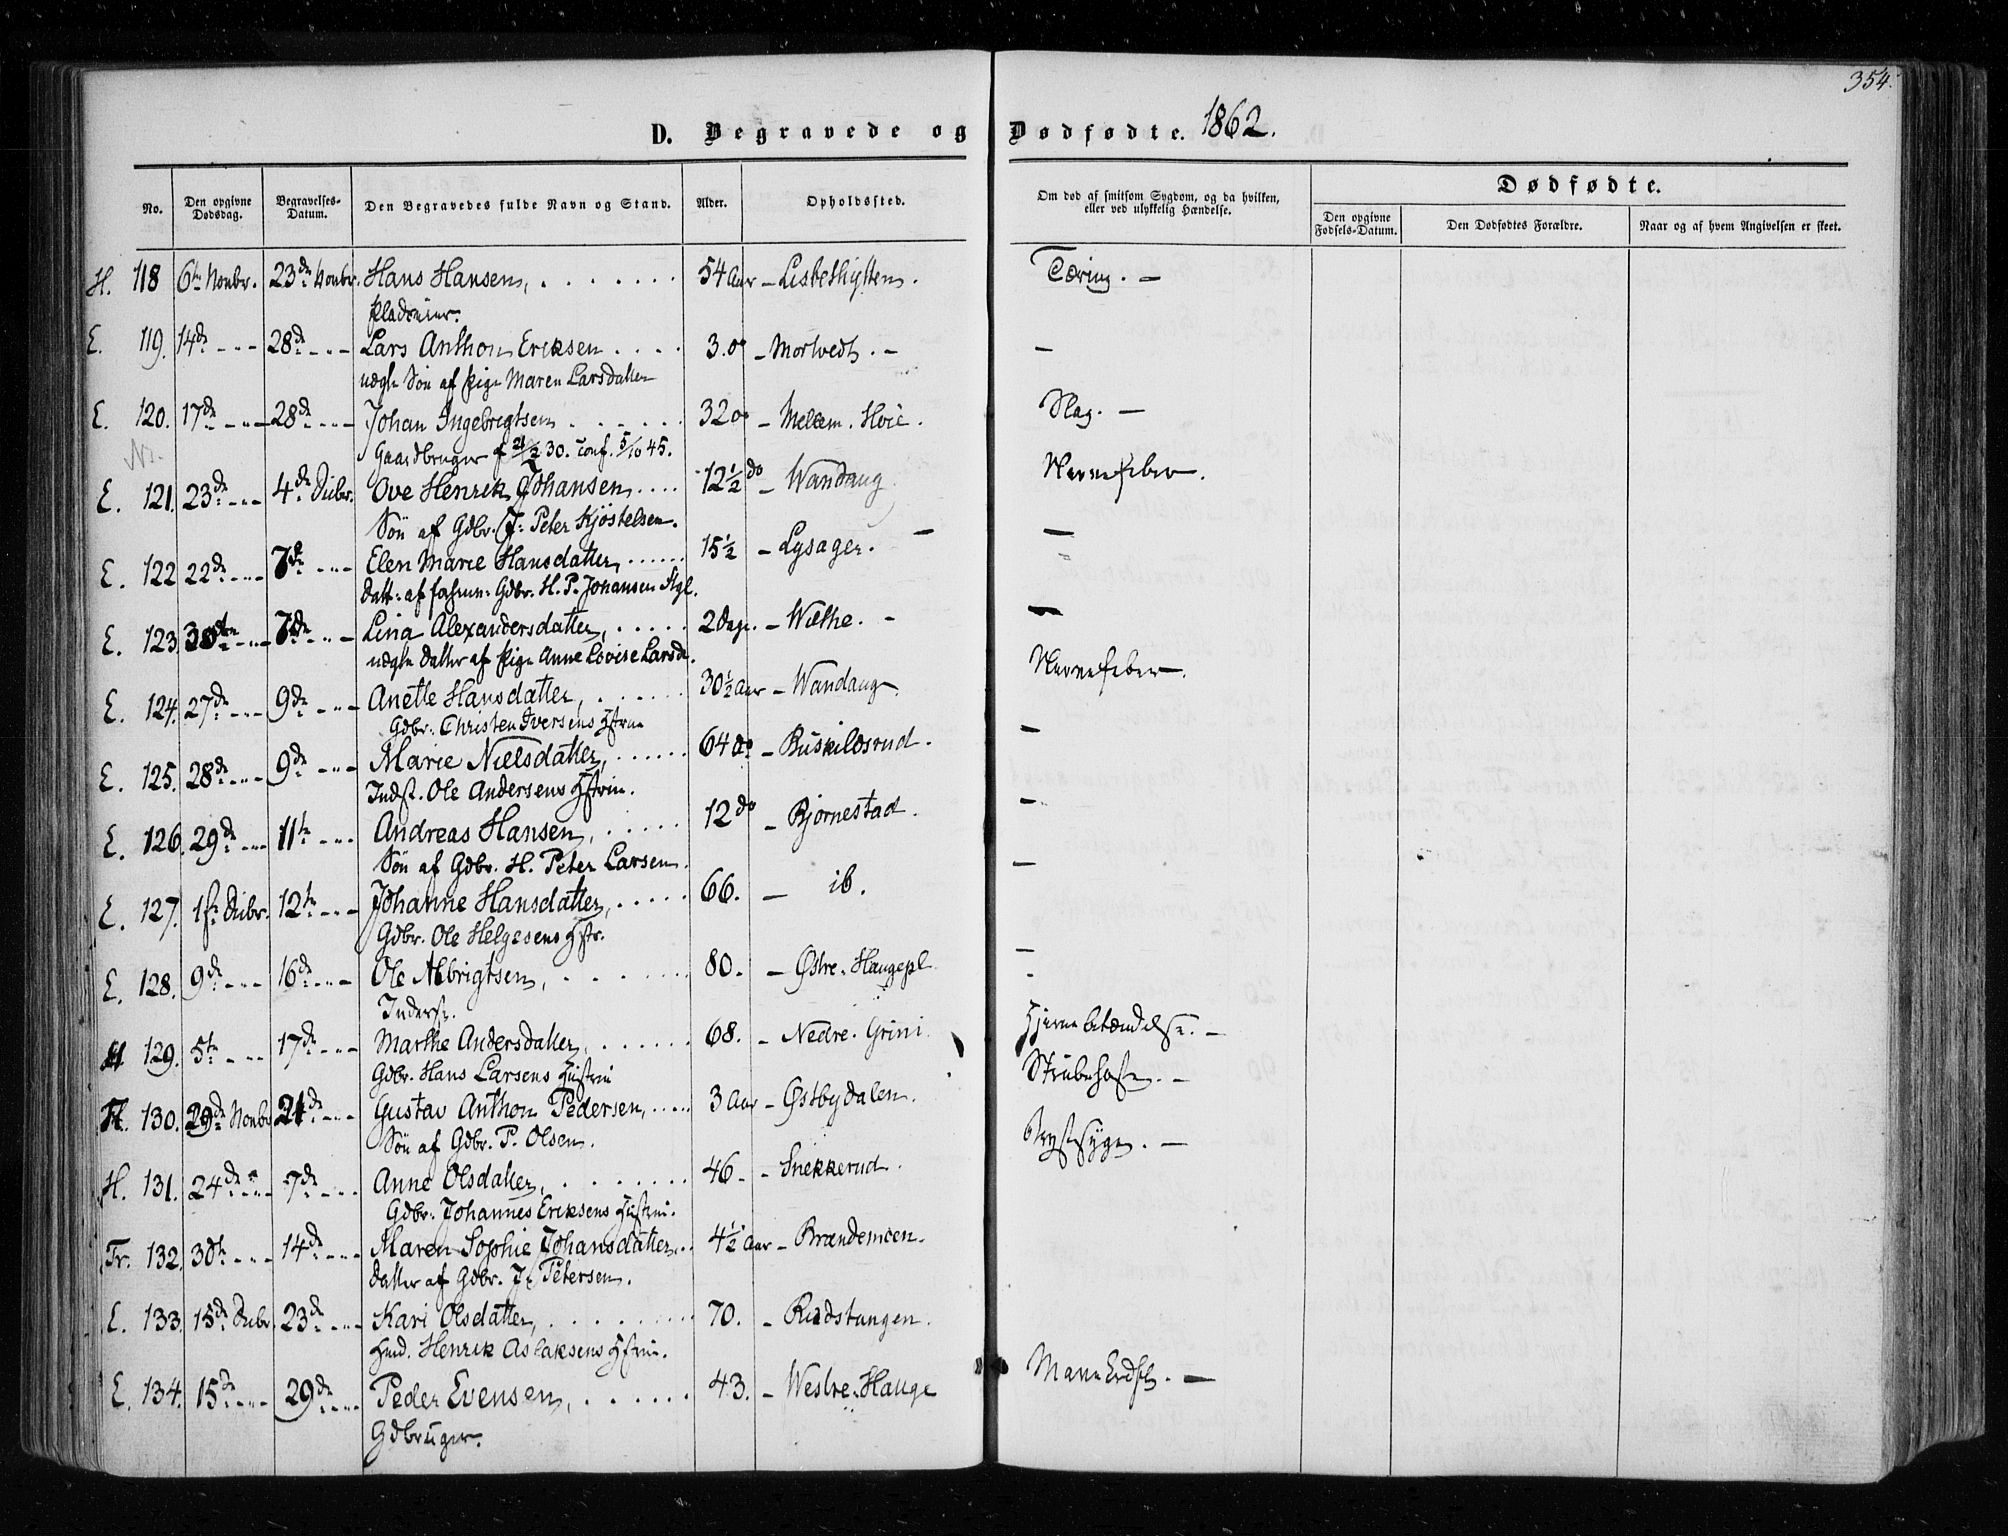 354.
D. Begravede og Dødfødte. 1862.
No.
Den opgivne Dødsdag.
Begravelses-Datum.
Den Begravedes fulde Navn og Stand.
Alder.
Opholdssted.
Om død af smitsom Sygdom, og da hvilken, eller ved ulykkelig Hændelse.
Dødfødte.
Den opgivne Fødsels-Datum.
Den Dødfødtes Forældre.
Naar og af hvem Angivelsen er skeet.
H. 118 6te Novbr. 23de Novbr. Hans Hansen, 54 Aar - Lisbethhytten. Tæring. -
Pladseier.
E. 119. 14de - - - 28de - - - Lars Anthon Eriksen 3. do - Mortvedt. - -
uægte Søn af Pige Maren Larsdatter
E. 120. 17de - - - 28de - - - Johan Ingebrigtsen 32 do - Mellem. Hvie. Slag. -
Gaardbruger f 21/2 30. Conf. 5/10 45.
E. 121. 23de - - - 4de Decbr. Ove Henrik Johansen 12½ do - Wandaug. Nervefeber.
Søn af Gdbr. J. Peter Kjøstelsen.
E. 122 22de - - - 7de - - - Elen Marie Hansdatter, 15½ - Lysager. - -
Datt. af Gdbr. H. P. Johansen
E. 123. 30te - - - 7de - - - Lina Alexandersdatter, 2 Dage. - Wæthe. - -
uægte Datter af Pige Anne Lovise Larsd.
E. 124. 27de - - - 9de - - - Anette Hansdatter, 30½ Aar - Wandaug. Nervefeber.
Gdbr. Christen Iversens Hstru
E. 125. 28de - - - 9de - - - Marie Nielsdatter, 64 do - Ruskildsrud. -
Indst. Ole Andersens Hstru.
E. 126. 29de - - - 11te - - - Andreas Hansen, 12 do - Bjørnestad. -
Søn af Gdbr. H. Peter Larsen.
E. 127. 1ste Decbr. 12te - - - Johanne Hansdatter, 66. - ib. -
Gdbr. Ole Helgesens Hstr.
E. 128. 9de - - - 16de - - - Ole Albrigtsen, 80. - Østre. Haugepl -
Inderst.
H 129. 5te - - - 17de - - - Marthe Andersdatter, 68. - Nedre. Grini. Hjernebetændelse. -
Gdbr. Hans Larsens Hustru
H. 130. 29de Novbr 21de - - - Gustav Anthon Pedersen, 3 Aar - Østbydalen. Strubehoste. -
Søn af Gdbr. P. Olsen.
H. 131. 24de - - - 7de - - - Anne Olsdatter, 46. - Snekkerud. Brystsyge. -
Gdbr. Johannes Eriksens Hustru.
Tr. 132. 30te - - - 14de - - - Maren Sophie Johansdatter 4½ Aar - Brændemoen.
Datter af Gdbr. J. Petersen.
E. 133. 15de Decbr. 23de - - - Kari Olsdatter, 70. - Rudstangen.
Henrik Aslaksens Hstru.
E. 134. 15de - - - 29de - - - Peder Evensen, 43. - Westre. Hauge
Gdbruger.